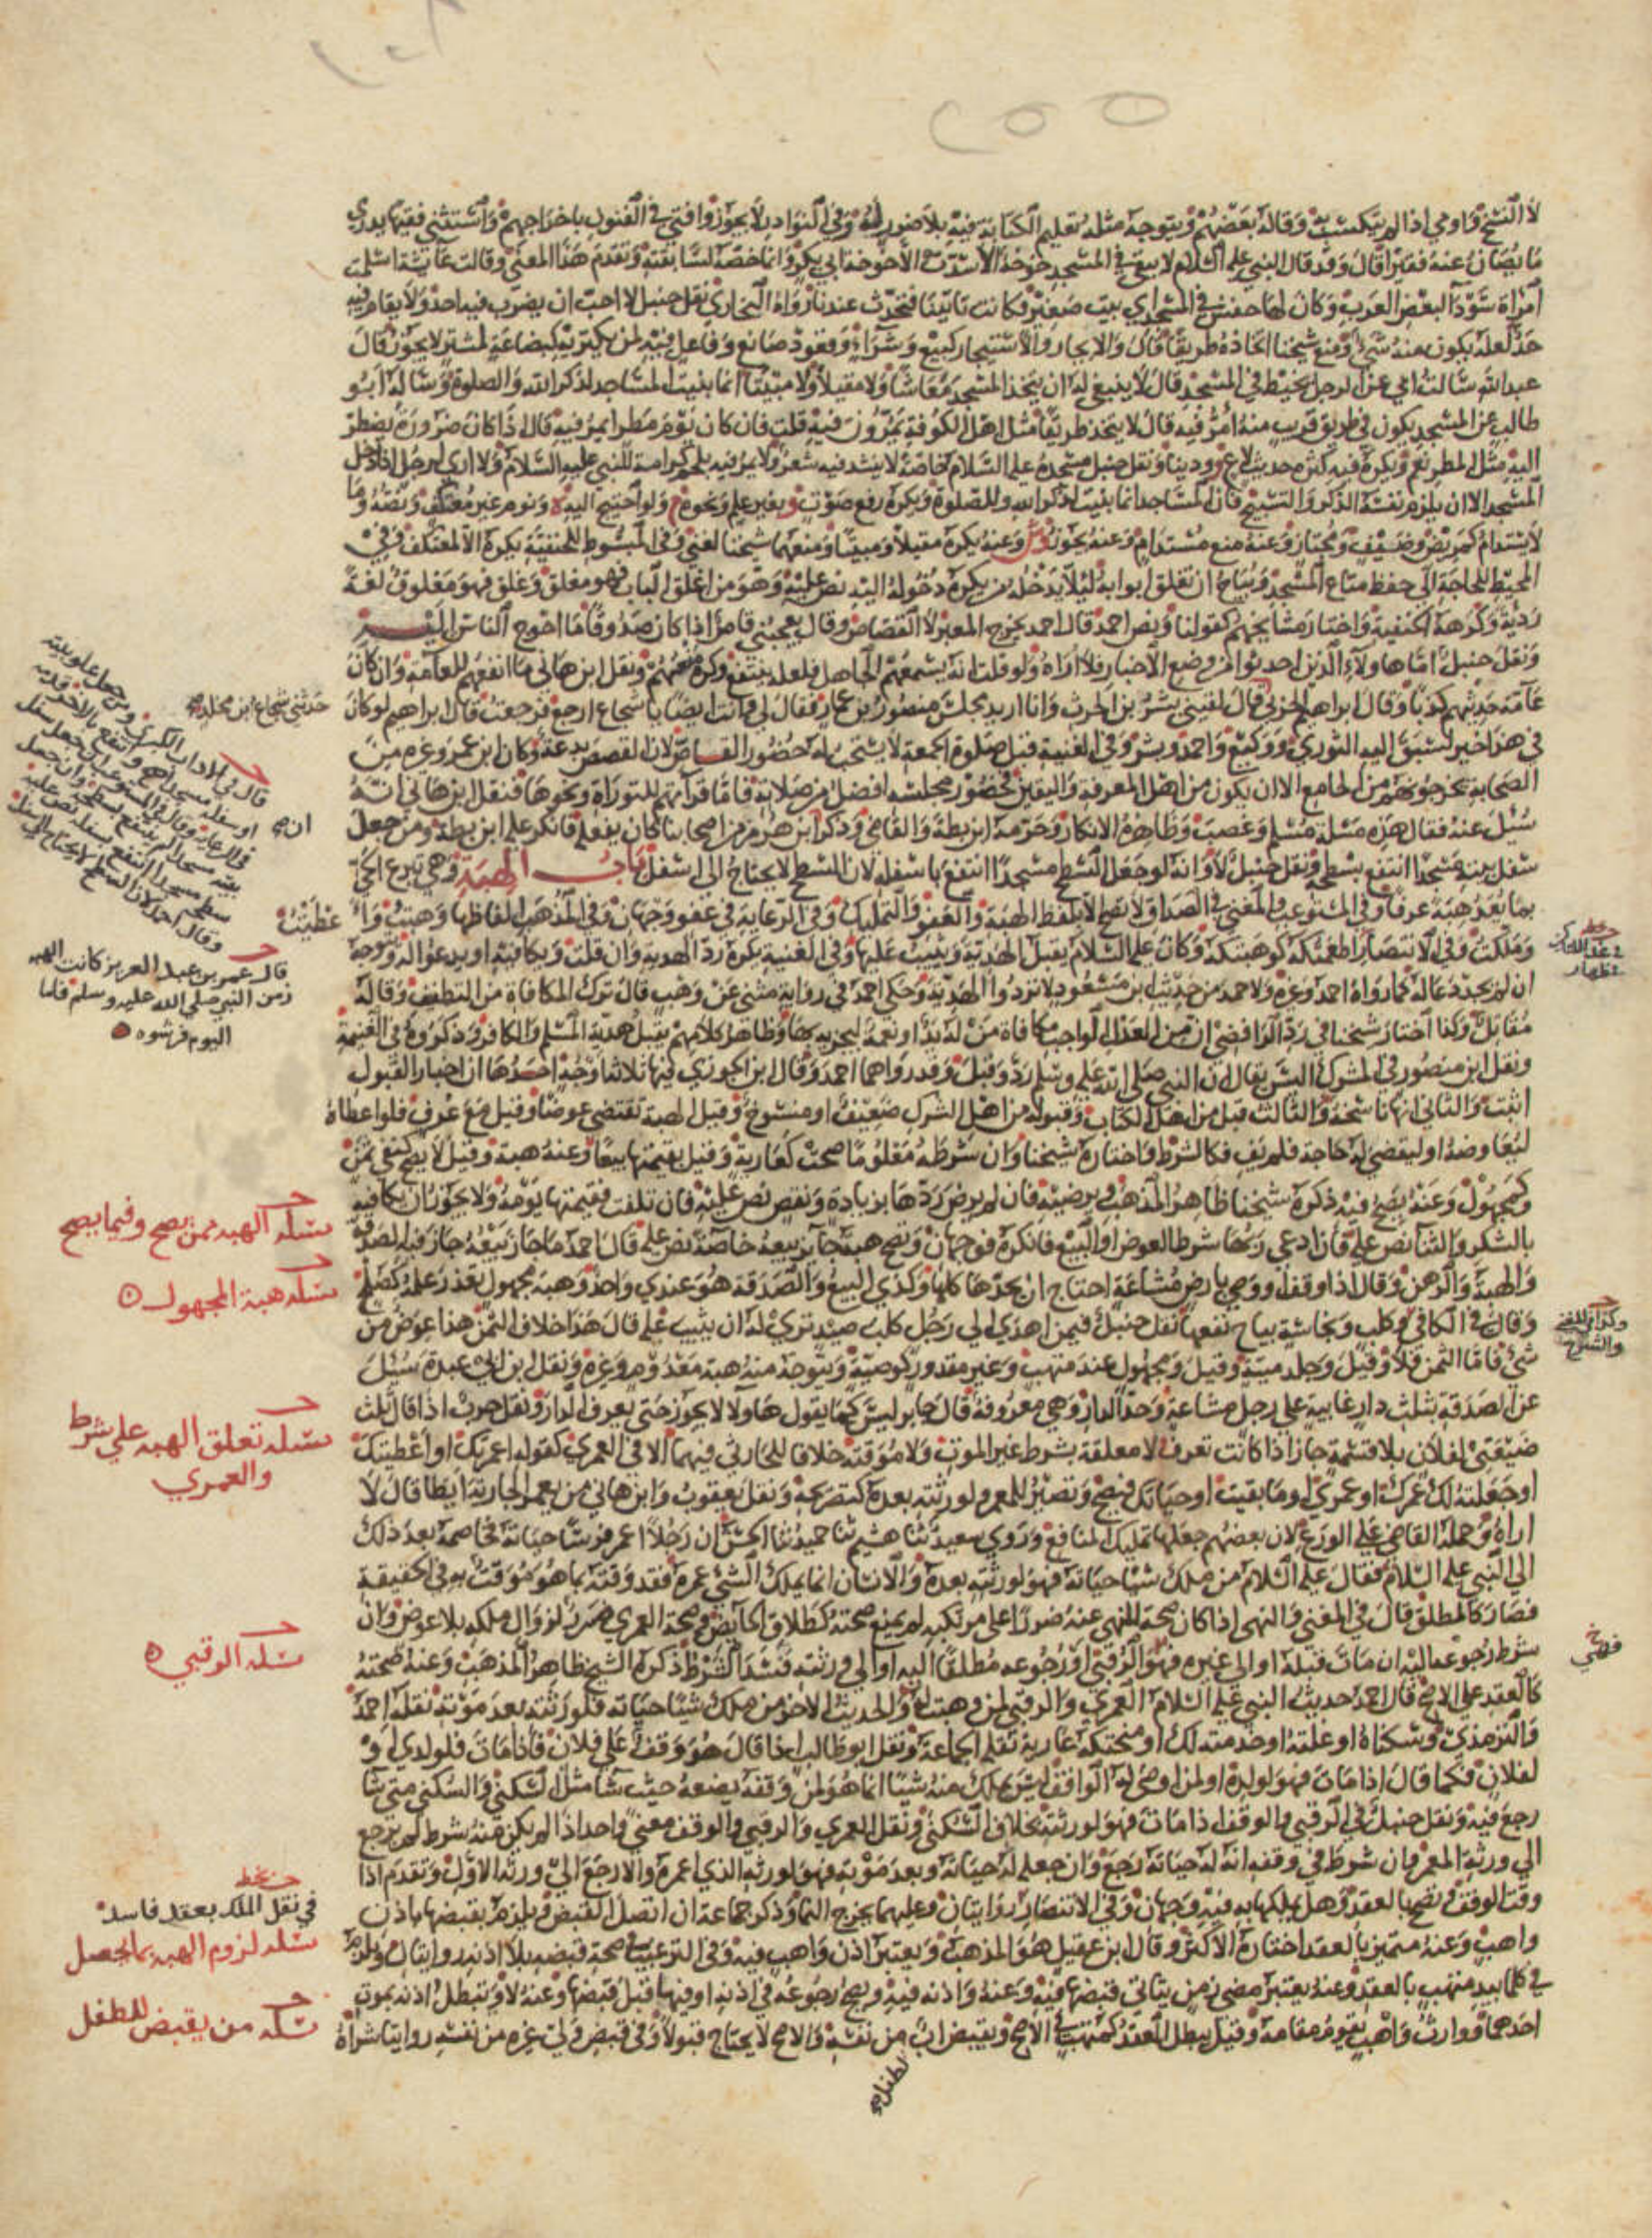 لا النسخ واومي اذا لم يتكسب به وقاله بعضهم ويتوجه مثله تعليم الكتابة فيه بلا ضرر وفي النوادر لا يجوز وافتى في الفنون باخراجهم واستثنى فقيها يدري
ما يصان عنه فقيرا قال وقد قال النبي عليه السلام لا يبقى في المسجد خوخة الا سدت الا خوخة ابي بكر وانما خصه لسابقته وتقدم هذا المعنى وقالت عائشة اسلمت
امراة سودا لبعض العرب وكان لها حفش في المسجد اي بيت صغير فكانت تاتينا فتحدث عندنا رواه البخاري نقل حنبل لا احب ان يضرب فيه احد ولا يقام فيه
حد لعله يكون منه شي ومنع شيخنا اتخاذه طريقا قال والايجار والاستيجار كبيع وشراء وقعود صانع وفاعل فيه لمن يكتريه كبضاعة لمشتر لا يجوز قال
عبد الله سالت ابي عن الرجل يخيط في المسجد قال لا ينبغي له ان يتخذ المسجد معاشا ولا مقيلا ولا مبيتا انما بنيت المساجد لذكر الله والصلوة وساله ابو
طالب عن المسجد يكون في طريق قريب منه امر فيه قال لا يتخذ طريقا مثل اهل الكوفة يمرون فيه قلت فان كان يوم مطر ايمر فيه قال اذا كان ضرورة يضطر
اليه مثل المطر نعم ويكره فيه كثرة حديث لاغ ودنيا ونقل حنبل مسجده عليه السلام خاصة لا ينشد فيه شعر ولا يمر فيه بلحم كرامة للنبي عليه السلام ولا ارى لرجل اذا دخل
المسجد الا ان يلزم نفسه الذكر والتسبيح فان المساجد انما بنيت لذكر الله وللصلوة ويكره رفع صوت بغير علم ونحوه ولو احتيج اليه ونوم غير معتكف ونصه وما
لا يستدام كمريض وضيف ومجتاز وعنه منع مستدام وعنه يجوز وعنه يكره مقيلا ومبيتا ومنعهما شيخنا لغني وفي المبسوط للحنفية يكره الا لمعتكف وفي
المحيط للحاجة الى حفظ متاع المسجد ويباح ان تغلق ابوابه ليلا يدخله من يكره دخوله اليه نص عليه وهو من اغلق الباب فهو مغلق وغلق فهو مغلوق لغة
ردية وكرهه الحنفية واختار مشايخهم كقولنا ونص احمد قال احمد يخرج المعبر لا القصاص وقال يعجبني قاص اذا كان صدوقا ما احوج الناس اليه
ونقل حنبل اما هاولاء الذين احدثوا من وضع الاخبار فلا اراه ولو قلت انه يسمعهم الجاهل فلعله ينتفع وكره منعهم ونقل ابن هاني ما انفعهم للعامة وان كان
عامة حديثهم كذبا وقال ابراهيم الحربي قال لقيني بشر بن الحرث وانا اريد مجلس منصور بن عمار فقال لي وانت ايضا يا شجاع ارجع فرجعت قال ابراهيم لو كان
في هذا خير لسبق اليه الثوري ووكيع واحمد وبشر وفي الغنية قبل صلوة الجمعة لا يستحب له حضور القاص لان القصص بدعة وكان ابن عمر وغيره من
الصحابة يخرجونهم من الجامع الا ان يكون من اهل المعرفة واليقين فحضور مجلسه افضل من صلاته فاما قراتهم للتوراة ونحوها فنقل ابن هاني انه
سئل عنه فقال هذه مسئلة مسلم وغضب وظاهره الانكار وحرمه ابن بطة والقاضي وذكر ابن هرمز من اصحابنا كان يفعله فانكر عليه ابن بطة ومن جعل
سفل بيته مسجدا انتفع بسطحه ونقل حنبل لا وانه لو جعل السطح مسجدا انتفع باسفله لان السطح لا يحتاج الى اسفل باب الهبة وهي تبرع الحي
بما يعد هبة عرفا وفي المستوعب والمغني في الصداق لا يصح الا بلفظ الهبة والعفو والتمليك وفي الرعاية في عفو وجهان وفي المذهب الفاظها وهبت وا
وملكت وفي الانتصار اطعمتكه كوهبتكه وكان عليه السلام يقبل الهدية ويثيب عليها وفي الغنية يكره رد الهدية وان قلت ويكافيه او يدعو له ويتوجه
ان لم يجد دعا له كما رواه احمد وغيره ولاحمد من حديث ابن مسعود لا تردوا الهدية وحكى احمد في رواية مثنى عن وهب قال ترك المكافاة من التطفيف وقاله
مقاتل وكذا اختار شيخنا في رد الرافضي ان من العدل الواجب مكافاة من له يد او نعمة ليجزيه بها وظاهر كلامهم يقبل هدية المسلم والكافر وذكروه في الغنيمة
ونقل ابن منصور في المشرك اليس يقال ان النبي صلى الله عليه وسلم رد وقبل وقد رواهما احمد وقال ابن الجوزي فيها ثلاثة اوجه احدها ان اخبار القبول
اثبت والثاني انها ناسخة والثالث قبل من اهل الكتاب وقبوله من اهل الشرك ضعيف او منسوخ وقيل الهبة تقتضي عوضا وقيل مع عرف فلو اعطاه
ليعاوضه او ليقضي له حاجة فلم يف فكالشرط واختاره شيخنا وان شرطه معلوما صحت كعارية وقيل بقيمتها بيعا وعنه هبة وقيل لا يصح كنفي ثمن
وكمجهول وعنه يصح فيه ذكره شيخنا ظاهر المذهب ويرضيه فان لم يرض ردها بزيادة ونقص نص عليه فان تلفت فقيمتها يومه ولا يجوز ان يكافيه
بالشكر والثنا نص عليه فان ادعى ربها شرط العوض او البيع فانكره فوجهان وتصح هبة جائز بيعه خاصة نص عليه قال احمد ما جاز بيعه جاز فيه الصدقة
والهبة والرهن وقال اذا وقف او وصى بارض مشاعة احتاج ان يحدها كلها وكذى البيع والصدقة هو عندي واحد وهبة مجهول تعذر علمه كصلح
وقال في الكافي وكلب ونجاسة يباح نفعها نقل حنبل فيمن اهدى الى رجل كلب صيد ترى له ان يثيب عليه قال هذا خلاف الثمن هذا عوض من
شئ فاما الثمن فلا وقيل وجلد ميتة وقيل ومجهول عند متهب وغير مقدور كوصية ويتوجه منه هبة معدوم وغيره ونقل ابن ابي عبدة سئل
عن الصدقة بثلث دار غايبة على رجل مشاعة وحد الدار وهي معروفة قال جابر ليس كما يقول هاولا لا يجوز حتى يعرف الدار ونقل حرب اذا قال ثلث
ضيعتي لفلان بلا قسمة جاز اذا كانت تعرف لا معلقة بشرط غير الموت ولا مؤقتة خلافا للحارثي فيهما الا في العمرى كقوله اعمرتك او اعطيتك
او جعلته لك عمرك او عمرى او ما بقيت او حياتك فيصح وتصير للمعمر ولورثته بعده كتصريحه ونقل يعقوب وابن هاني من يعمر الجارية ايطا قال لا
اراه وحمله القاضي على الورع لان بعضهم جعلها تمليك المنافع وروى سعيد ثنا هشيم ثنا حميد ثنا الحسن ان رجلا اعمر فرسا حياته فخاصمه بعد ذلك
الى النبي عليه السلام فقال عليه السلام من ملك شيا حياته فهو لورثته بعده والانسان انما يملك الشئ عمره فقد وقته بما هو موقت به في الحقيقة
فصار كالمطلق قال في المغني والنهى اذا كان صحة المنهى عنه ضررا على مرتكبه لم يمنع صحته كطلاق الحائض وصحة العمرى ضرر لزوال ملكه بلا عوض وان
شرط رجوعها اليه ان مات قبله او الى غيره فهو الرقبى او رجوعه مطلقا اليه او الى ورثته فسد الشرط ذكره الشيخ ظاهر المذهب وعنه صحته
كالعقد على الاصح قال احمد حديث النبي عليه السلام العمرى والرقبى لمن وهبت له والحديث الاخر من ملك شيئا حياته فلورثته بعد موته نقله احمد
والترمذي وسكناه او غلته او خدمته لك او منحتكه عارية نقله الجماعة ونقل ابو طالب اذا قال هو وقف على فلان فاذا مات فلولدي او
لفلان فكما قال اذا مات فهو لولده او لمن اوصى له الواقف ليس يملك منه شيئا انما هو لمن وقفه يضعه حيث شا مثل السكنى والسكنى متى شا
رجع فيه ونقل حنبل في الرقبى والوقف اذا مات فهو لورثته بخلاف السكنى ونقل العمرى والرقبى والوقف معنى واحد اذا لم يكن فيه شرط لم يرجع
الى ورثة المعمر وان شرط في وقفه انه له حياته رجع وان جعله له حياته وبعد موته فهو لورثة الذي اعمره والا رجع الى ورثة الاول وتقدم اذا
وقت الوقف وتصح بالعقد وهل يملكها به فيه وجهان وفي الانتصار روايتان وعليهما يخرج النما وذكر جماعة ان اتصل القبض ويلزم بقبضها باذن
واهب وعنه متميز بالعقد اختاره الاكثر وقال ابن عقيل هو المذهب ويعتبر اذن واهب فيه وفي الترغيب في صحة قبضه بلا اذنه روايتان ويلزم
في كلما بيد متهب بالعقد وعنه يعتبر مضي زمن يتاتى قبضها فيه وعنه واذنه فيه ويصح رجوعه في اذنه او فيها قبل قبضها وعنه لا وتبطل اذنه بموت
احدهما ووارث واهب يقوم مقامه وقيل يبطل العقد كمتهب في الاصح ويقبض اب من نفسه والاصح لا يحتاج قبولا وفي قبض ولي غيره من نفسه روايتا شراه
لطفل
حدثني شجاع ابن مخلد
قال في الاداب الكبرى
غطيت
قال عمر بن عبد العزيز كانت الهبة
زمن النبي صلى الله عليه وسلم فاما
اليوم فرشوه
مسئله الهبه ممن يصح وفيما يصح
مسئله هبة المجهول
مسئله تعلق الهبه على شرط
والعمري
مسئله الرقبي
في نقل الملك بعقد فاسد
مسئله لزوم الهبه بما يحصل
مسئله من يقبض للطفل
وكذا في المغني
والشرح
فهي